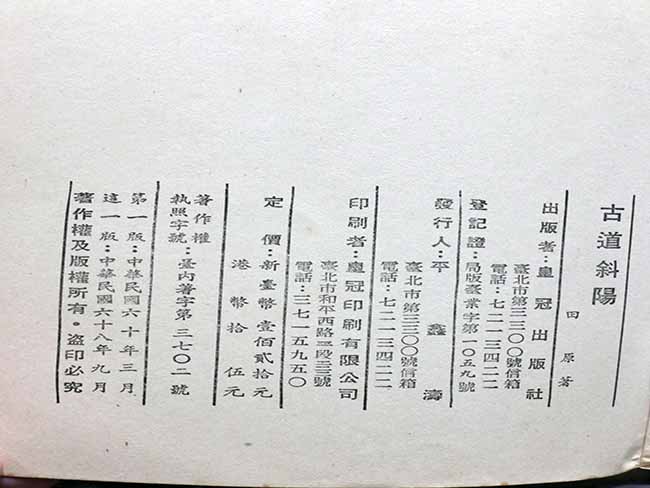 古道斜陽
田原著
出版者：皇冠出版社
臺北市第三三〇〇號信箱
電話：七二一三四二二
登記證：局版臺業字第一〇五九號
發行人：平鑫濤
臺北市第三三〇〇號信箱
電話：七二一三四二二
印刷者：皇冠印刷有限公司
臺北市和平西路
電話：三七一五九五〇
定價：新臺幣壹佰貳拾元
港幣拾伍元
著作權
執照字號：臺內著字第三七〇二號
第一版：中華民國六十年三月
這一版：中華民國六十八年九月
著作權及版權所有。盜印必究